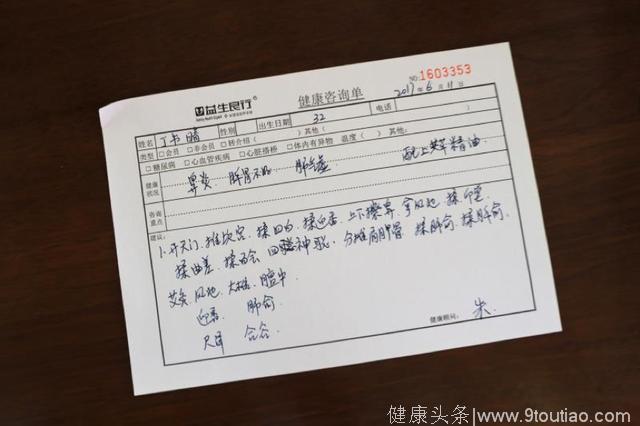 益生良行 健康咨询单 NO:1603353
2017年6月11日
姓名 丁书晴 性别 出生日期 32 电话
类型 □会员 □非会员 □转介绍( )其他( )
□糖尿病 □心血管疾病 □心脏搭桥 □体内有异物 温度( )其他( )
健康状况 鼻炎、脾胃不好、肺气虚 配上 精油
咨询重点
建议:
1.开天门、推坎宫、揉四白、揉迎香、上下擦鼻、拿风池、揉印堂
揉曲差、揉百会 神 、分推肩胛骨 揉肺俞、揉脾俞、
艾灸 风池、大椎、膻中
迎香 肺俞
尺泽 合谷
健康顾问: 朱
健康头条/www.9toutiao.com